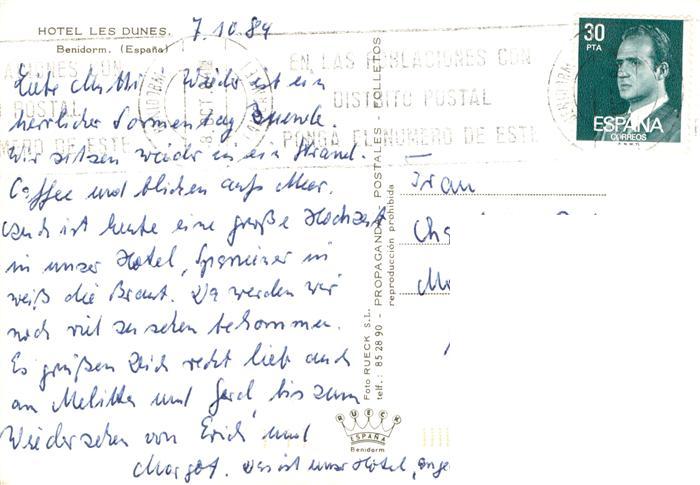 HOTEL LES DUNES.
Benidorm. (España)
7.10.84
Liebe Mutti! Wieder ist ein
herrlicher Sonnentag zuende.
Wir sitzen wieder in ein Strand-
Caffee und blicken aufs Meer.
Auch ist heute eine große Hochzeit
in unser Hotel, Spanier in
weiß die Braut. Da werden wir
noch viel zu sehen bekommen.
Es grüßen Dich recht lieb auch
an Melitta und Gerd, bis zum
Wiedersehen von Erich und
Margot. Das ist unser Hotel,
EN LAS POBLACIONES CON
DISTRITO POSTAL
PONGA EL NUMERO DE ESTE
ACIONES CON
POSTAL
MERO DE ESTE
30
PTA
ESPAÑA
CORREOS
Frau
Foto RUECK S.L. - PROPAGANDAS POSTALES - FOLLETOS
telf.: 85 28 90 - reproducción prohibida
RUECK
ESPAÑA
Benidorm